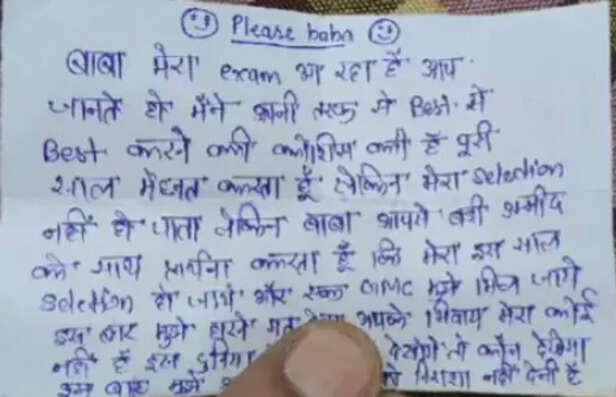 Please baba
बाबा मेरा exam आ रहा है आप
जानते हो मैंने अपनी तरफ से Best से
Best करने की कोशीस करी है पूरी
साल मेहनत करता हूँ लेकिन मेरा selection
नहीं हो पाता लेकिन बाबा आपसे बड़ी उम्मीद
के साथ प्रार्थना करता हूँ कि मेरा इस साल
selection हो जाये और एक GMC मुझे मिल जाये
इस बार मुझे हारने मत देना आपके सिवाय मेरा कोई
नहीं है इस दुनिया देखोगे तो कौन देखेगा
इस बार मुझे निराशा नहीं देनी है